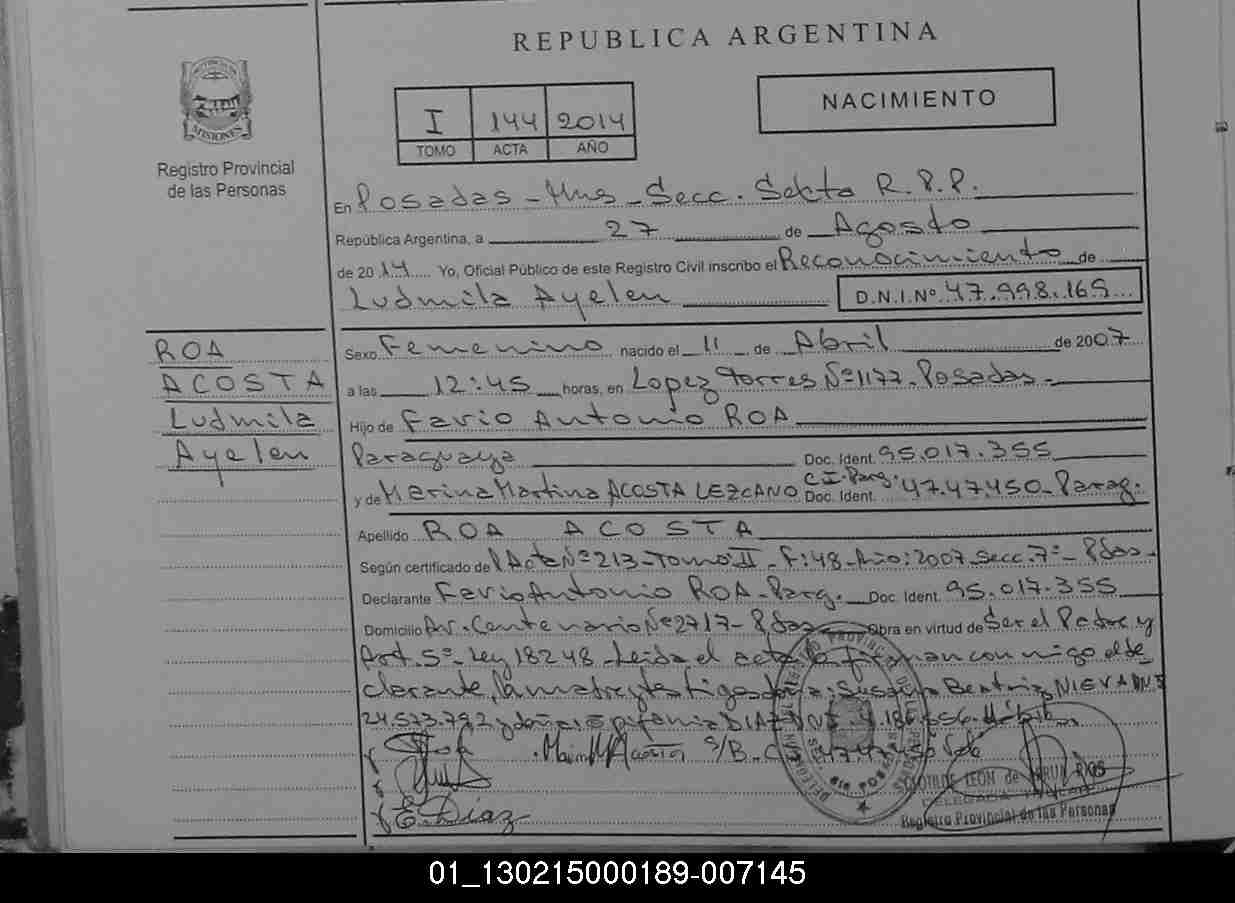 REPUBLICA ARGENTINA
PROVINCIA DE
MISIONES
Registro Provincial
de las Personas
I 144 2014
TOMO ACTA AÑO
NACIMIENTO
En Posadas - Mns - Secc. Sexta R.P.P.
República Argentina, a 27 de Agosto
de 2014 Yo, Oficial Público de este Registro Civil inscribo el Reconocimiento de
Ludmila Ayelen D.N.I. Nº 47.998.165
ROA
ACOSTA
Ludmila
Ayelen
Sexo Femenino nacido el 11 de Abril de 2007
a las 12:45 horas, en Lopez Torres Nº 1177. Posadas.
Hijo de Favio Antonio ROA
Paraguaya Doc. Ident. 95.017.355
y de Marina Martina ACOSTA LEZCANO C.I. Parg. Doc. Ident. 47.47.450 - Parag.
Apellido ROA ACOSTA
Según certificado de Acta Nº 213 - Tomo II - F: 48 - Año: 2007. Secc. 7º - Pdas -
Declarante Favio Antonio ROA - Parg. Doc. Ident. 95.017.355
Domicilio Av. Centenario Nº 2717 - Pdas Obra en virtud de Ser el Padre y
Art. 5º - Ley 18248 - Leida el acta la firman conmigo el de
clarante, la madre y testigos doña: Susana Beatriz NIEVA DNI
24.573.792 y doña: Epifania DIAZ DNI
Acosta S/B. C.I.
E. Diaz
LEON de
DELEGADA
Registro Provincial de las Personas
01_130215000189-007145